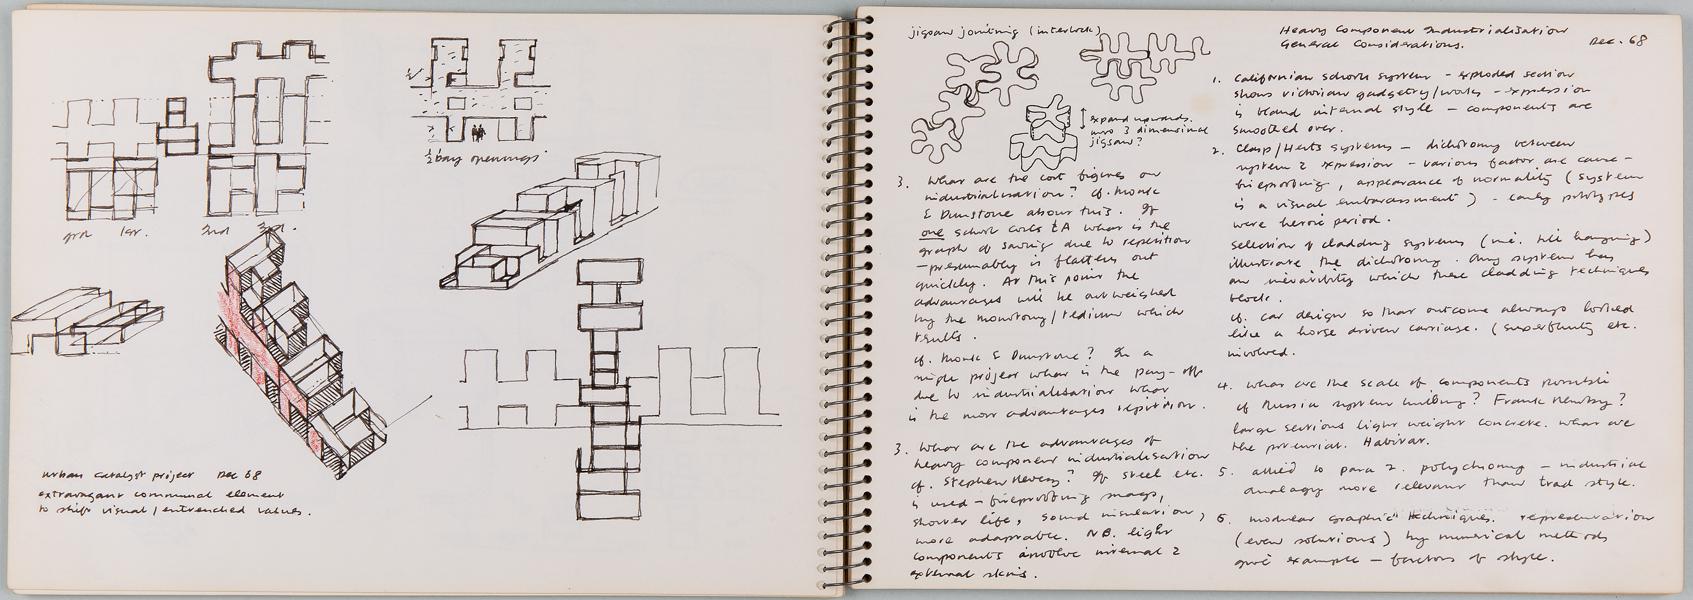 grd 1st.
2nd 3rd.
½ bay openings
urban catalyst project Dec 68
extravagant communal element
to shift visual/entrenched values.
jigsaw jointing (interlock)
expand upwards.
into 3 dimensional
jigsaw?
3. What are the cost figures on
industrialisation? cf. Monk
& Dunstone about this. If
one school costs £A what is the
graph of saving due to repetition
– presumably it flattens out
quickly. At this point the
advantages will be outweighed
by the monotony/tedium which
results.
cf. Monk & Dunstone? In a
single project what is the pay-off
due to industrialisation what
is the most advantageous repetition.
3. What are the advantages of
heavy component industrialisation
cf. Stephen Heney? If steel etc.
is used – fireproofing snags,
shorter life, sound insulation,
more adaptable. N.B. light
components involve internal &
external skins.
Heavy Component Industrialisation
General Considerations. Dec. 68
1. Californian schools system – exploded section
shows victorian gadgetry/works – expression
is bland internal style – components are
smoothed over.
2. Clasp/Herts systems – dichotomy between
system & expression – various factor are cause –
fireproofing, appearance of normality (system
is a visual embarassment) – early prototypes
were heroic period.
selection of cladding systems (inc. tile hanging)
illustrate the dichotomy. Any system has
an inevitability which these cladding techniques
block.
cf. car design so that outcome always looked
like a horse driven carriage. (superfluity etc.
involved.
4. What are the scale of components possible
cf Russia system building? Frank Newby?
large sections light weight concrete. What are
the potential. Habitat.
5. allied to para 2. polychromy – industrial
analogy more relevant than trad style.
6. modular graphic techniques. representation
(even solutions) by numerical methods
give example – factors of style.